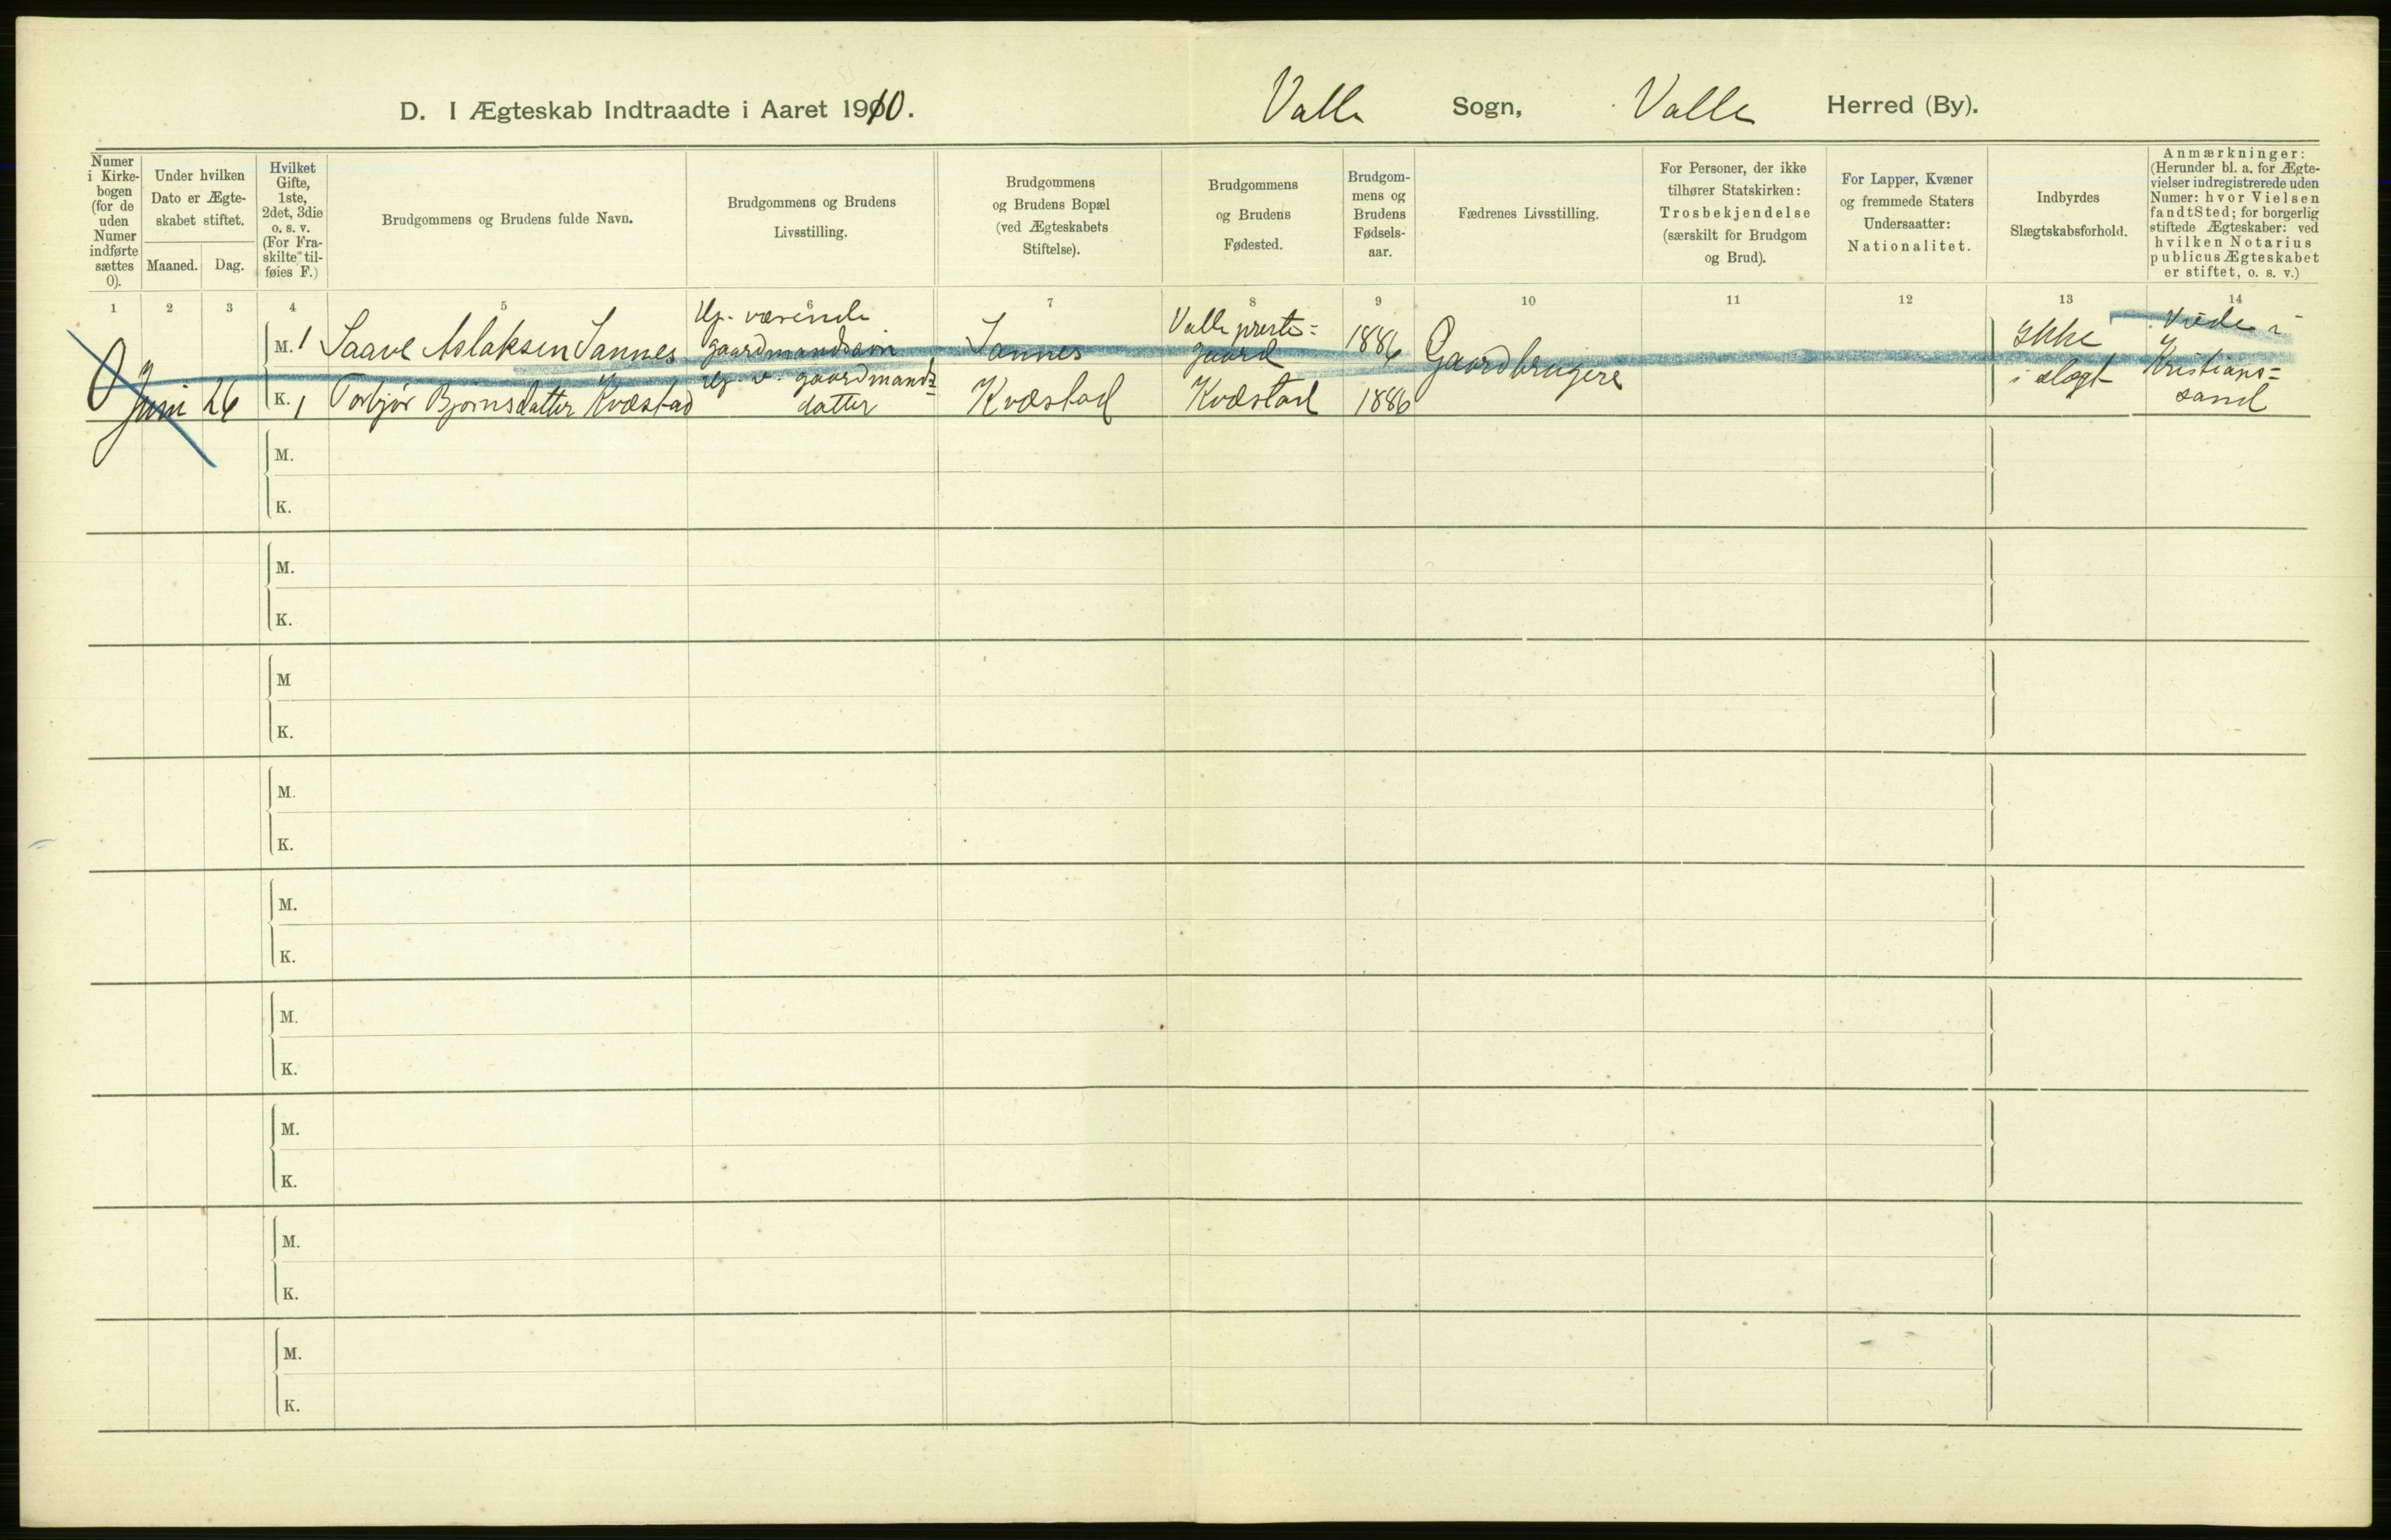 D. I Ægteskab Indtraadte i Aaret 1910. Valle Sogn, Valle Herred (By).
Numer i Kirke-
bogen
(for de
uden
Numer
indførte
sættes
0).
Under hvilken
Dato er Ægte-
skabet stiftet.
Maaned. Dag.
Hvilket
Gifte,
1ste,
2det, 3die
o. s. v.
(For Fra-
skilte til-
føies F.)
Brudgommens og Brudens fulde Navn.
Brudgommens og Brudens
Livsstilling.
Brudgommens
og Brudens Bopæl
(ved Ægteskabets
Stiftelse).
Brudgommens
og Brudens
Fødested.
Brudgom-
mens og
Brudens
Fødsels-
aar.
Fædrenes Livsstilling.
For Personer, der ikke
tilhører Statskirken:
Trosbekjendelse
(særskilt for Brudgom
og Brud).
For Lapper, Kvæner
og fremmede Staters
Undersaatter:
Nationalitet.
Indbyrdes
Slægtskabsforhold.
Anmærkninger:
(Herunder bl. a. for Ægte-
vielser indregistrerede uden
Numer: hvor Vielsen
fandt Sted; for borgerlig
stiftede Ægteskaber: ved
hvilken Notarius
publicus Ægteskabet
er stiftet, o. s. v.)
1 2 3 4 5 6 7 8 9 10 11 12 13 14
0 Juni 26
M. 1 Saave Aslaksen Sannes
Hj. værende
gaardmandssøn
Sannes
Valle preste=
gaard
1886
Gaardbrugere
Ikke
i slægt
Viede i
Kristians=
sand
K. 1 Torbjør Bjørnsdatter Kvæstad
Hj. v. gaardmands=
datter
Kvæstad Kvæstad 1886
M.
K.
M.
K.
M
K.
M.
K.
M.
K.
M.
K.
M.
K.
M.
K.
M.
K.